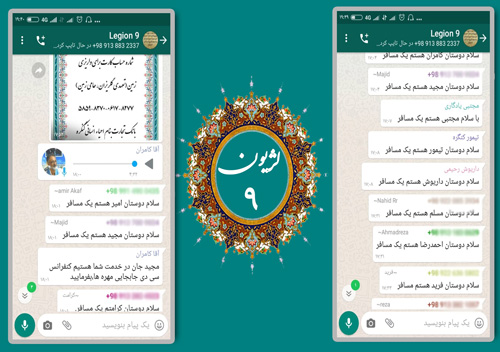 ۱۹:۴۰
4G
Legion 9
+98 913 883 2337 در حال تایپ کرد...
شماره حساب کارت برای واریزی
۸۴۷۷-۰۶۱۷-۸۴۷۰-۵۸۵۹
بانک تجارت بنام احیاء انسانی کنگره
آقا کامران
~amir Akaf
سلام دوستان امیر هستم یک مسافر
~Majid
سلام دوستان مجید هستم یک مسافر
آقا کامران
مجید جان در خدمت شما هستیم کنفرانس
سی دی جابجایی مهره ها،بفرمایید
~کرامت
سلام دوستان کرامتم یک مسافر
یک پیام بنویسید
لژیون
۹
4G
Legion 9
+98 913 883 2337 در حال تایپ کرد...
سلام دوستان کامران هستم یک مسافر
~Majid
سلام دوستان مجید هستم یک مسافر
مجتبی یادگاری
با سلام مجتبی هستم یک مسافر
تیمور کنگره
سلام دوستان تیمور هستم یک مسافر
داریوش رحیمی
سلام دوستان داریوش هستم یک مسافر
~Nahid Rr
سلام دوستان مسلم هستم یک مسافر
~Ahmadreza
سلام دوستان احمدرضا هستم یک مسافر
~فرید
سلام دوستان فرید هستم یک مسافر
~reza
یک پیام بنویسید